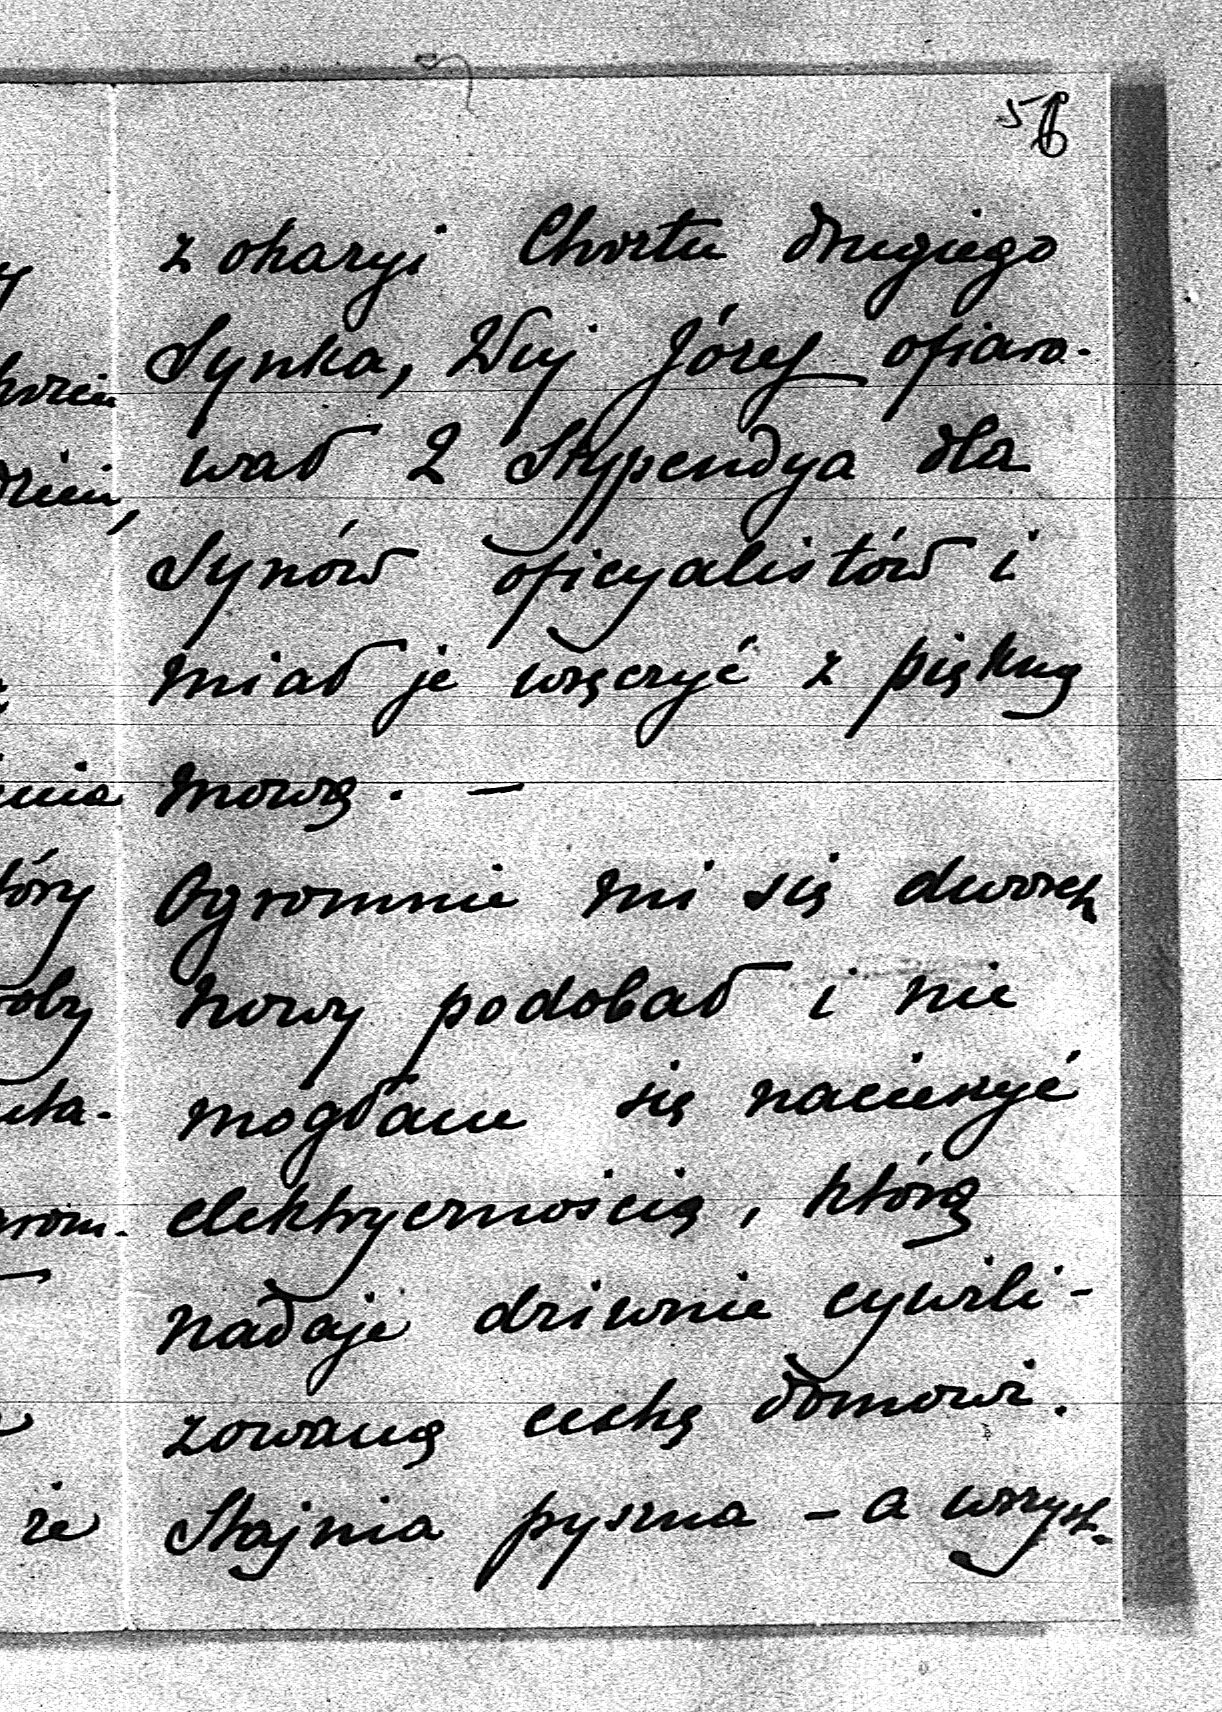 56
z okazyi Chrztu drugiego
Synka, Wuj Józef ofiaro-
wał 2 Stypendya dla
Synów oficyalistów i
miał je wręczyć z piękną
mową. —
Ogromnie mi się dworek
nowy podobał i nie
mogłam się nacieszyć
elektrycznością, którą
nadaje dziwnie cywili-
zowaną cechę domowi.
Stajnia pyszna – a wszyst-